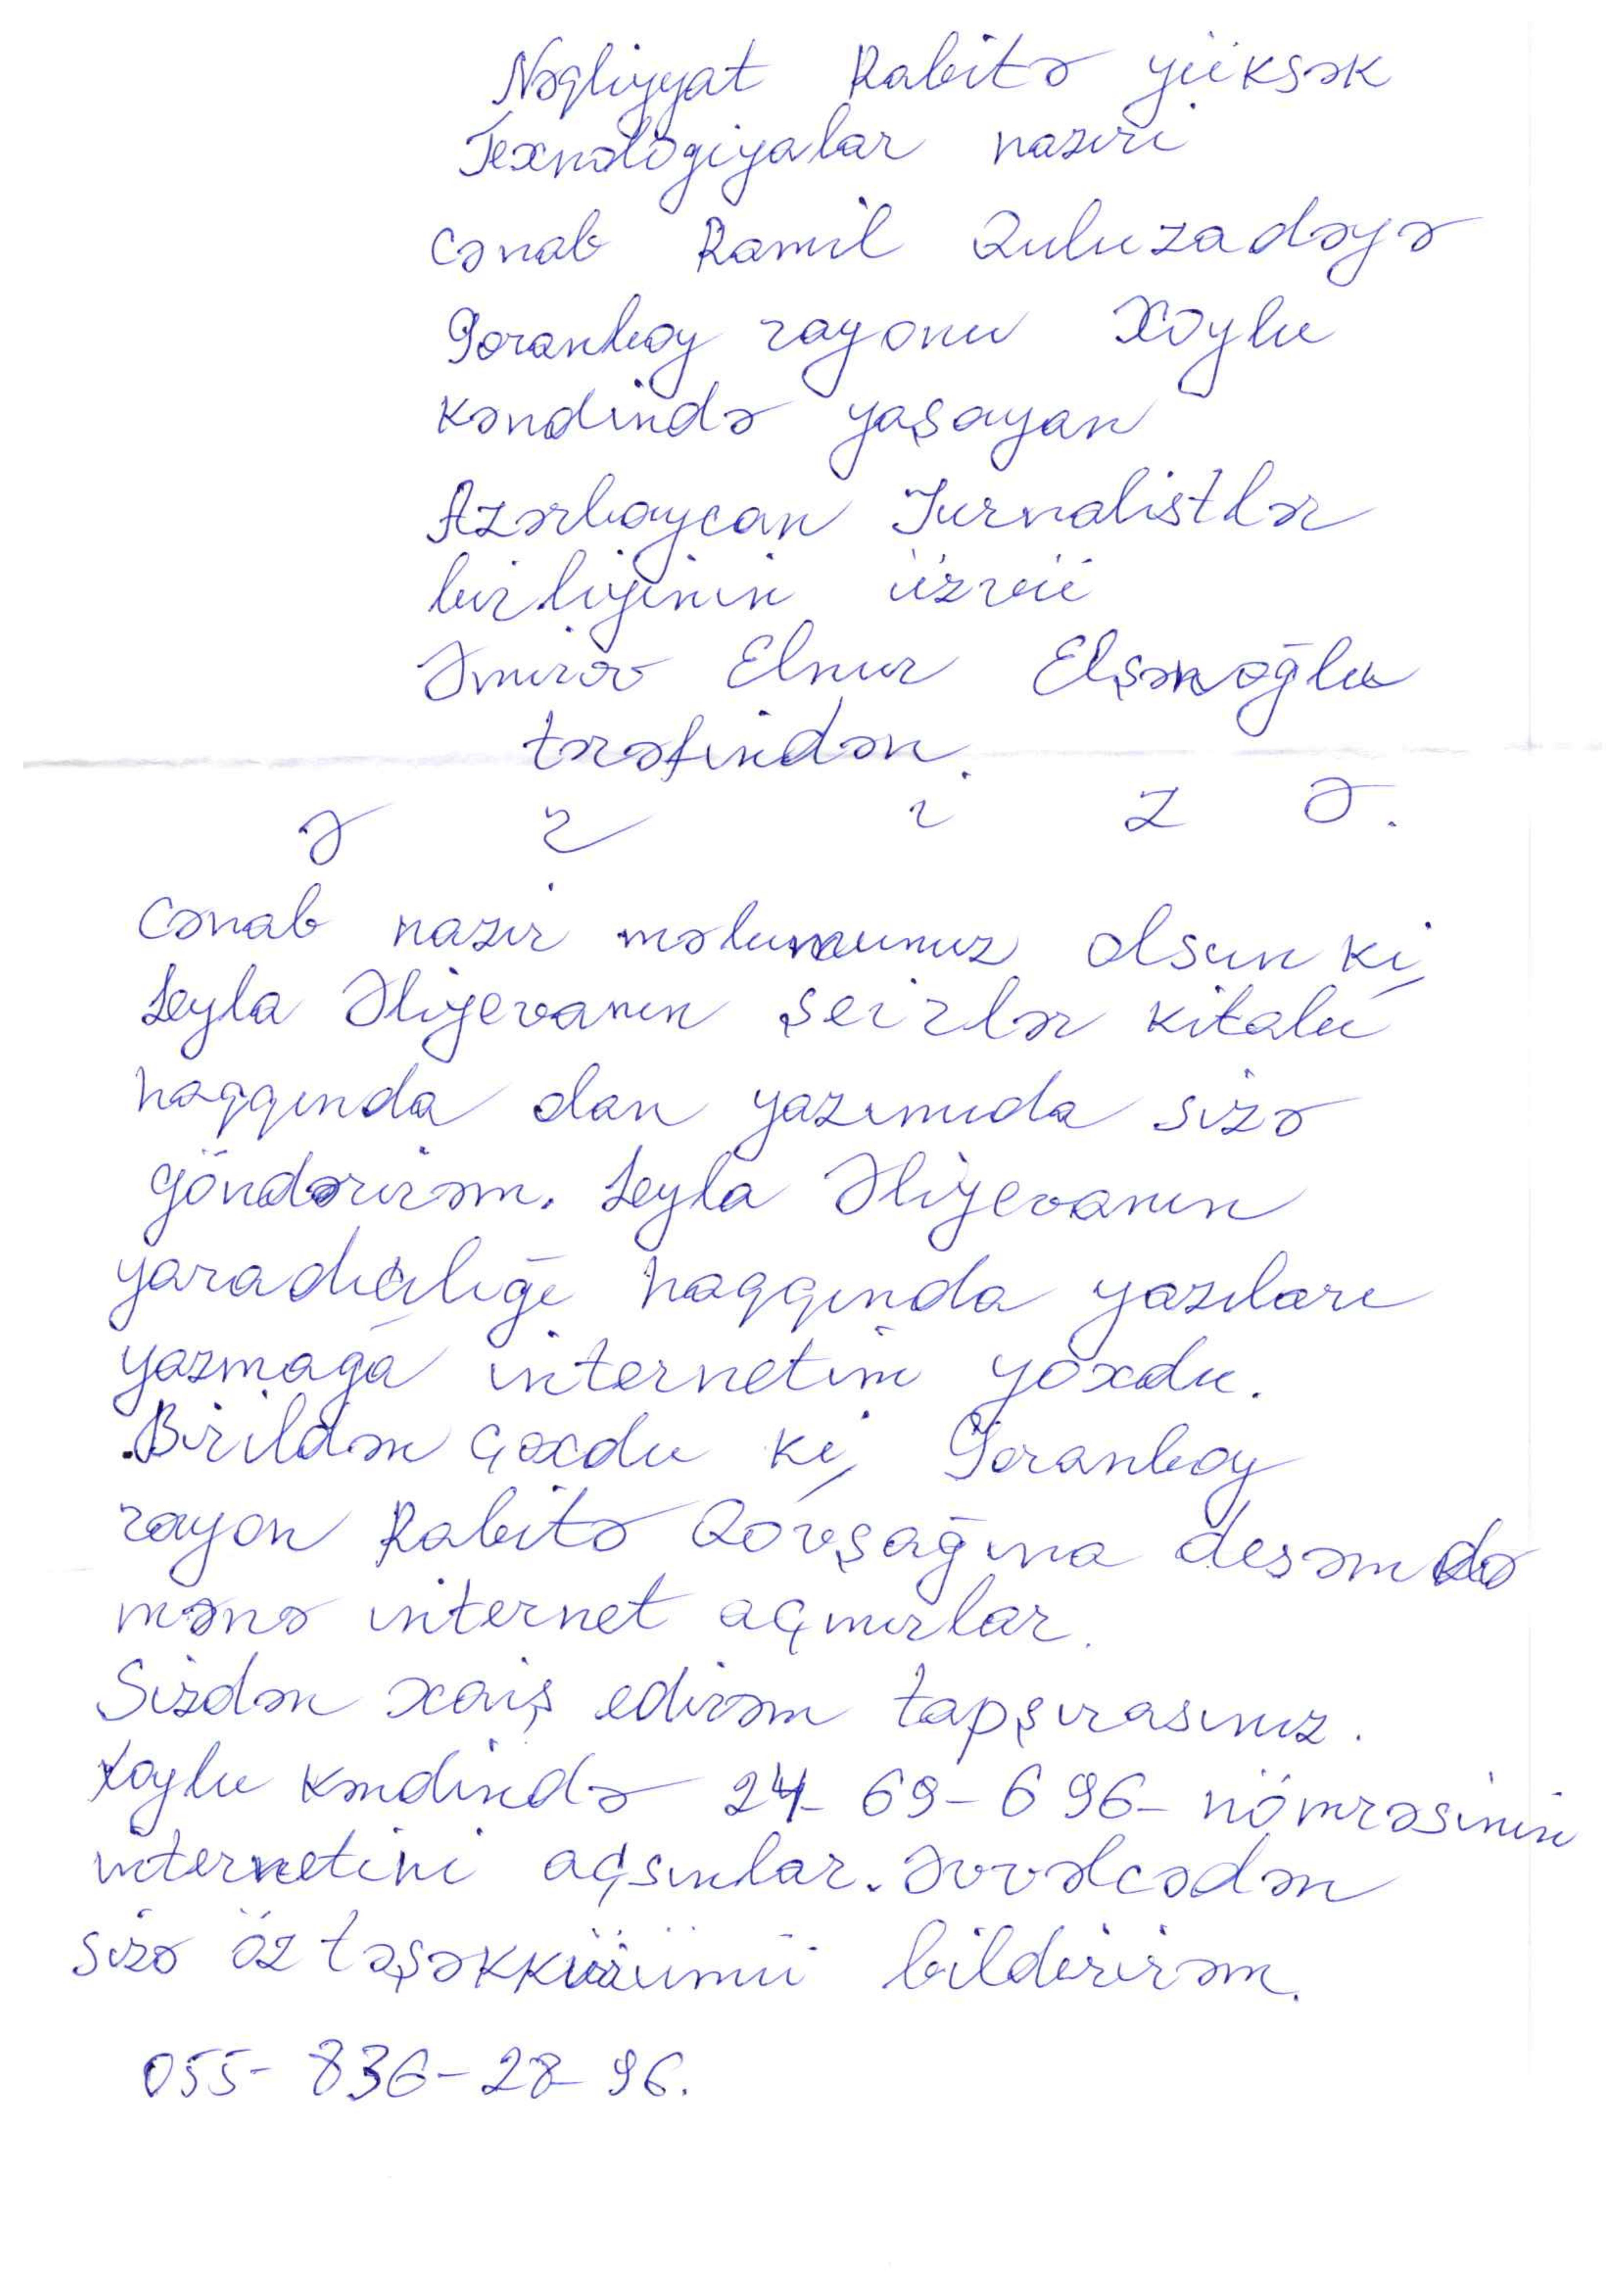 Nəqliyyat Rabitə yüksək
Texnologiyalar naziri
cənab Ramil Quluzadəyə
Goranboy rayonu Xoylu
kəndində yaşayan
Azərbaycan Jurnalistlər
birliyinin üzvü
Əmirov Elnur Elşənoğlu
tərəfindən.
Ə r i z ə.
Cənab nazir məlumunuz olsun ki,
Leyla Əliyevanın şeirlər kitabı
haqqında olan yazımıda sizə
göndərirəm. Leyla Əliyevanın
yaradıcılığı haqqında yazıları
yazmağa internetim yoxdu.
Birildən çoxdu ki, Goranboy
rayon Rabitə Qovşağına desəmdə
mənə internet açmırlar.
Sizdən xaiş edirəm tapşırasınız.
Xoylu kəndində 24-69-696- nömrəsinin
internetini açsınlar. Əvvəlcədən
sizə öz təşəkkürümü bildirirəm.
055-836-28-96.